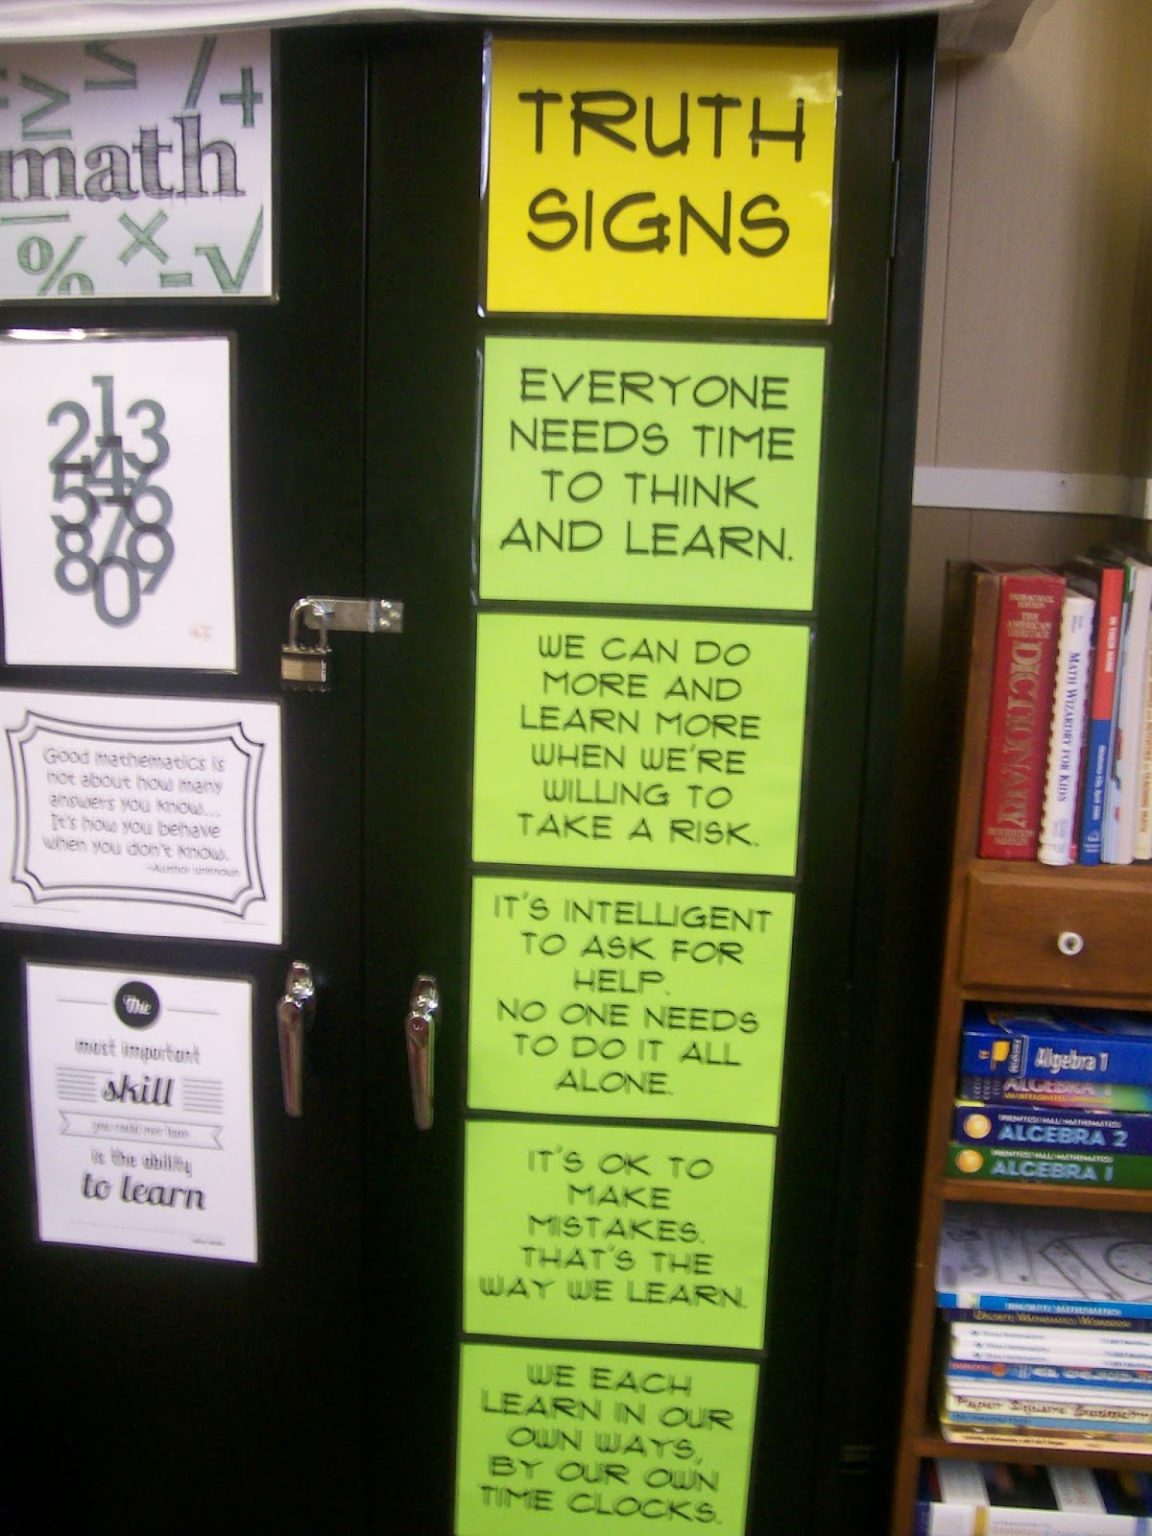 math
%
TRUTH
SIGNS
EVERYONE
NEEDS TIME
TO THINK
AND LEARN.
WE CAN DO
MORE AND
LEARN MORE
WHEN WE'RE
WILLING TO
TAKE A RISK.
IT'S INTELLIGENT
TO ASK FOR
HELP.
NO ONE NEEDS
TO DO IT ALL
ALONE.
IT'S OK TO
MAKE
MISTAKES.
THAT'S THE
WAY WE LEARN.
WE EACH
LEARN IN OUR
OWN WAYS,
BY OUR OWN
TIME CLOCKS.
1
2 3
4
5 6
7
8 9
0
Good mathematics is
not about how many
answers you know...
It's how you behave
when you don't know.
~Author Unknown
The
most important
skill
you could ever have
is the ability
to learn
THE
AMERICAN
HERITAGE
DICTIONARY
MATH WIZARDRY FOR KIDS
Algebra 1
ALGEBRA 1
PRENTICE HALL MATHEMATICS
ALGEBRA 2
PRENTICE HALL MATHEMATICS
ALGEBRA 1
Paper Square Geometry